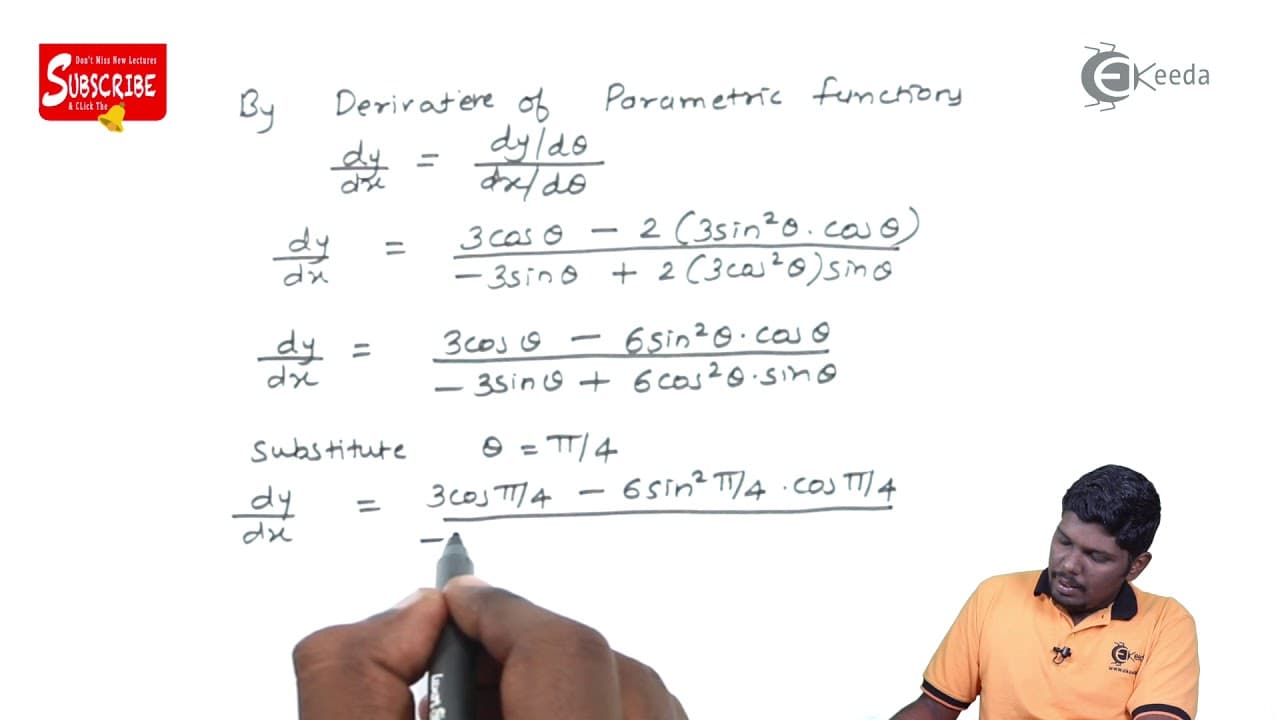 Don't Miss New Lectures
SUBSCRIBE
& Click The
EKeeda
By Derivative of Parametric functions
dy/dx = (dy/dθ)/(dx/dθ)
dy/dx = (3cosθ − 2(3sin²θ·cosθ))/(−3sinθ + 2(3cos²θ)sinθ)
dy/dx = (3cosθ − 6sin²θ·cosθ)/(−3sinθ + 6cos²θ·sinθ)
Substitute θ = π/4
dy/dx = (3cosπ/4 − 6sin²π/4·cosπ/4)/(−
EKeeda